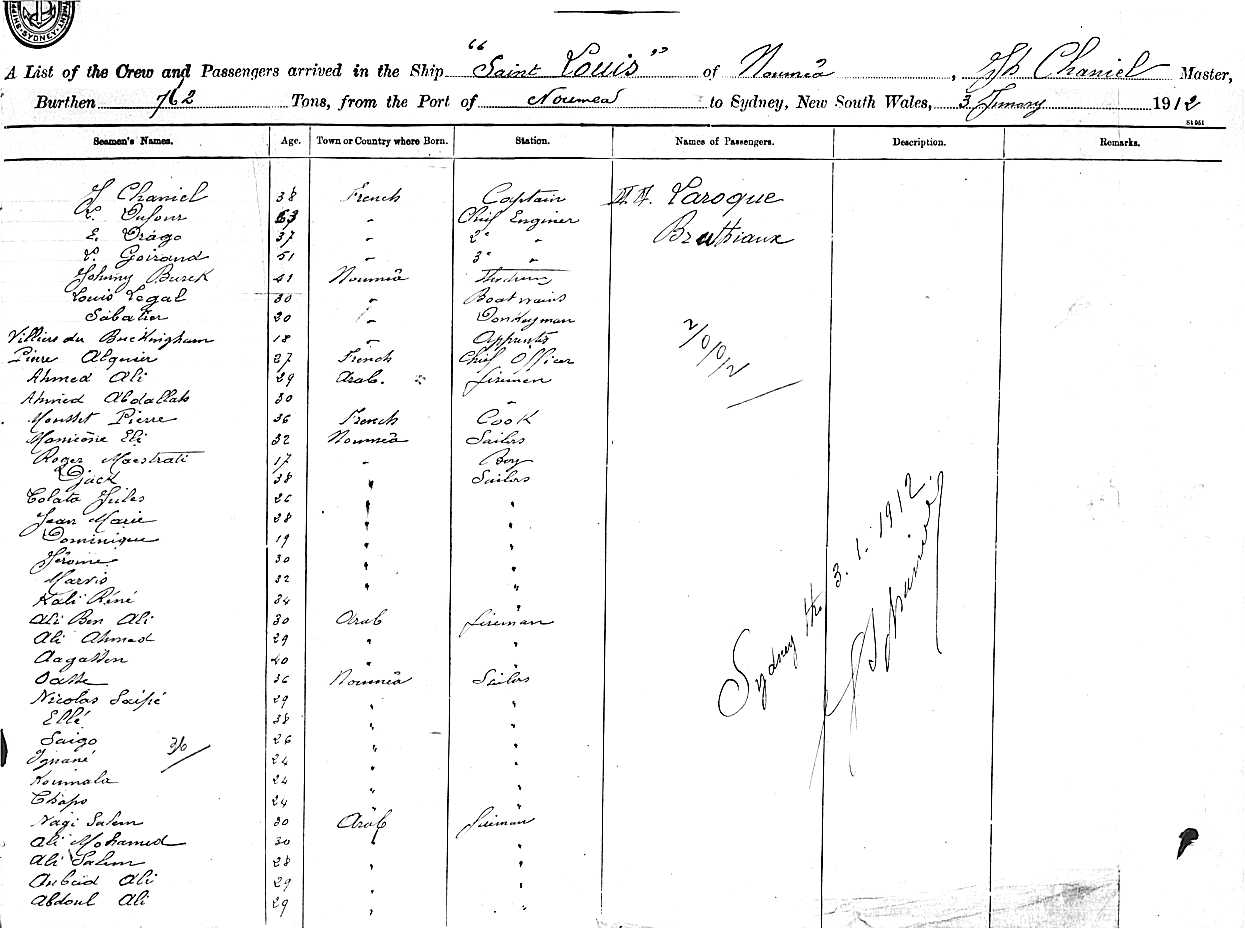 SYDNEY
A List of the Crew and Passengers arrived in the Ship "Saint Louis" of Nouméa, Jph Chaniel Master,
Burthen 762 Tons, from the Port of Noumea to Sydney, New South Wales, 3 January 1912
S1051
Seamen's Names. Age. Town or Country where Born. Station. Names of Passengers. Description. Remarks.
J Chaniel 38 French Captain M.M. Laroque
L. Dufour 53 " Chief Enginer
E. Drago 37 " 2° " Bruthiaux
L. Goirand 51 " 3° "
Johnny Burck 41 Nouméa
Louis Legal 30 " Boatswains
Sabatier 20 " Donkeyman
Villiers du Buckingham 18 " Apprentis
Pierre Alquier 27 French Chief Officer
Ahmed Ali 29 Arab. firemen
Ahmed Abdallah 30 "
Mousset Pierre 36 French Cook
Manicône Eli 32 Nouméa Sailors
Roger Maestrati 17 " Boy
Djack 38 " Sailors
Colata Jules 26 " "
Jean Marie 28 " "
Dominique 19 " "
Jérome 30 " "
Marvis 32 " "
Kali Réné 34 " "
Ali Ben Ali 30 Arab fireman
Ali Ahmed 29 " "
Aagassen 40 " "
Oasse 36 Nouméa Sailors
Nicolas Saipé 29 " "
Ellé 38 " "
Saigo 26 " "
Ignané 24 " "
Koumala 24 " "
Chapo 24 " "
Nagi Salem 30 Arab fireman
Ali Mohamed 30 " "
Ali Salem 28 " "
Oubeid Ali 29 " "
Abdoul Ali 29 " "
2/0/0/2
3/0
Sydney the 3.1.1912
J Chaniel